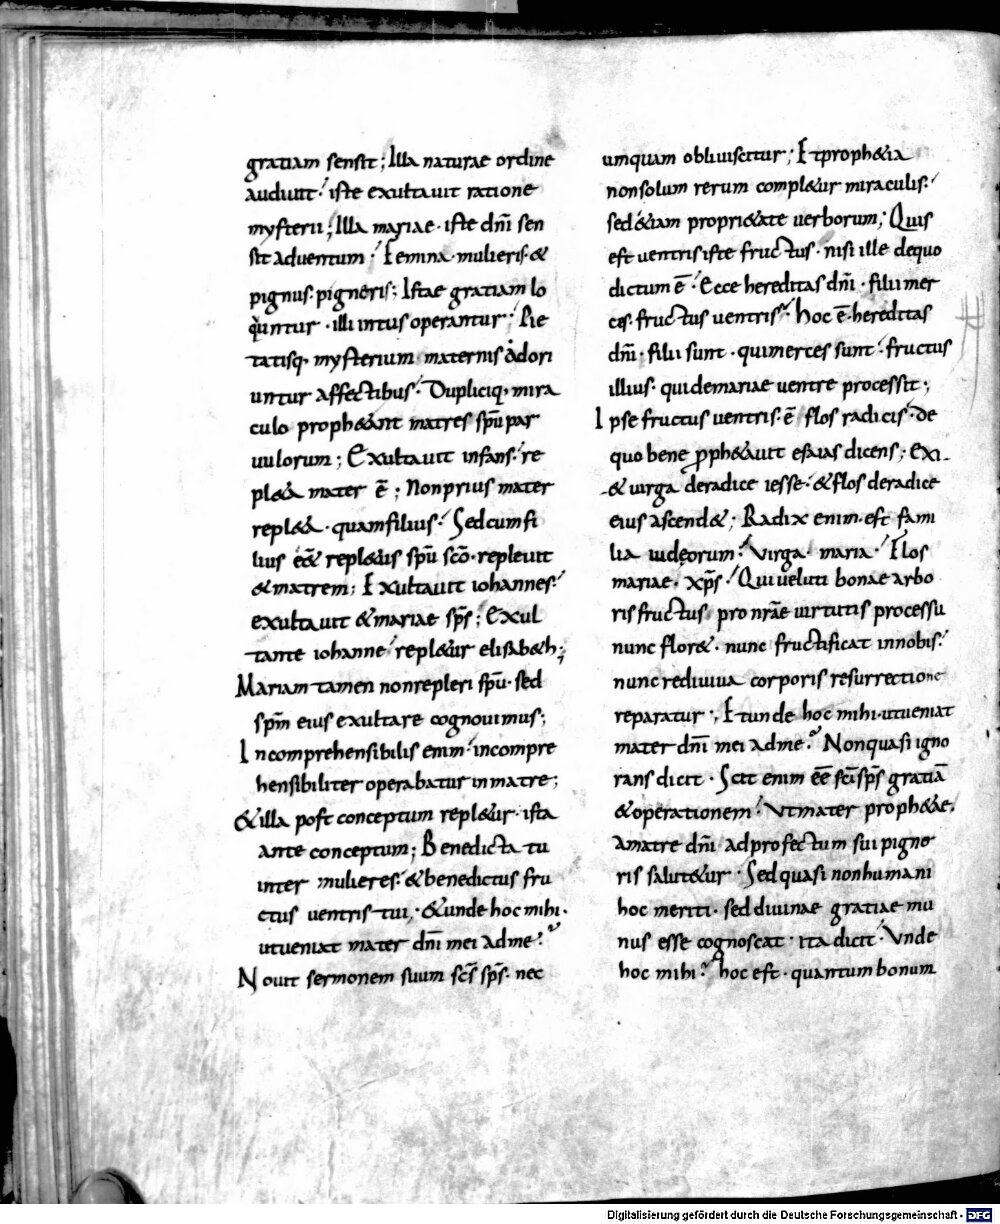 gratiam sensit; Illa naturae ordine
audiuit· iste exultauit ratione
mysterii; Illa mariae· iste dñi sen
sit aduentum· Femina mulieris· &
pignus· pigneris; Istae gratiam lo
quuntur· illi intus operantur· Pie
tatisq· mysterium maternis adori
untur affectibus· Dupliciq· mira
culo proph&ant matres spū par
uulorum; Exultauit infans· re
pl&a mater ē; Non prius mater
repl&a· quam filius· Sed cum fi
lius eēt repl&us spū scō· repleuit
& matrem; Exultauit iohannes·
exultauit & mariae sps; Exul
tante iohanne repl&ur elisab&h;
Mariam tamen non repleri spū· sed
spm eius exultare cognouimus;
Incomprehensibilis enim· incompre
hensibiliter operabatur in matre;
& illa post conceptum repl&ur· ista
ante conceptum; Benedicta tu
inter mulieres· & benedictus fru
ctus uentris tui; & unde hoc mihi·
ut ueniat mater dñi mei ad me?
Nouit sermonem suum scs sps· nec
umquam obliuiscitur; Et proph&ia
non solum rerum compl&ur miraculis·
sed &iam propri&ate uerborum; Quis
est uentris iste fructus· nisi ille de quo
dictum ē· Ecce hereditas dñi· filii mer
ces· fructus uentris? hoc ē· hereditas
dñi· filii sunt· qui merces sunt· fructus
illius· qui de mariae uentre processit;
Ipse fructus uentris· ē flos radicis· de
quo bene proph&auit esaias dicens; Exi
& uirga de radice iesse· & flos de radice
eius ascend&; Radix enim· est fami
lia iudęorum· Virga· maria· Flos
mariae· xps· Qui ueluti bonae arbo
ris fructus pro nrae uirtutis processu
nunc flor&· nunc fructificat in nobis·
nunc rediuiua corporis resurrectione
reparatur; Et unde hoc mihi· ut ueniat
mater dñi mei ad me? Non quasi igno
rans dicit· Scit enim eē sci sps gratiā
& operationem· Vt mater proph&ae·
a matre dñi ad profectum sui pigno
ris salut&ur· Sed quasi non humani
hoc meriti· sed diuinae gratiae mu
nus esse cognoscat· ita dicit· Vnde
hoc mihi? hoc est· quantum bonum
Digitalisierung gefördert durch die Deutsche Forschungsgemeinschaft - DFG